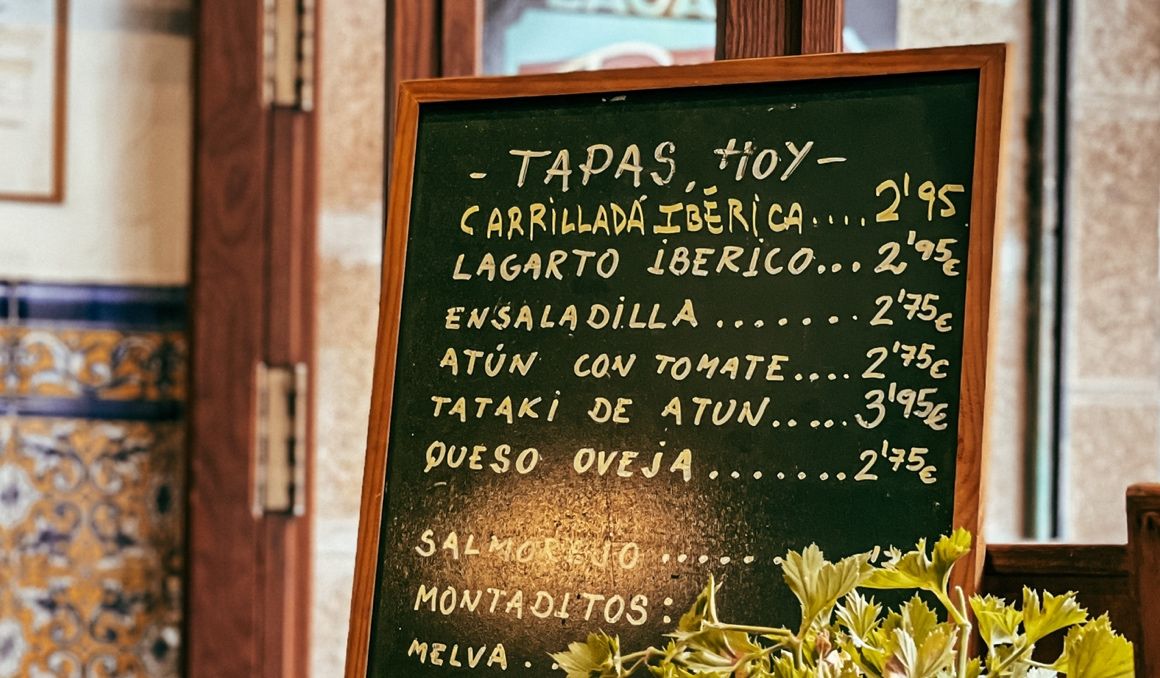 - TAPAS, HOY -
CARRILLADÁ IBÉRICA.... 2'95
LAGARTO IBERICO... 2'95€
ENSALADILLA ....... 2'75€
ATÚN CON TOMATE.... 2'75€
TATAKI DE ATUN..... 3'95€
QUESO OVEJA ....... 2'75€
SALMOREJO ......
MONTADITOS:
MELVA ..